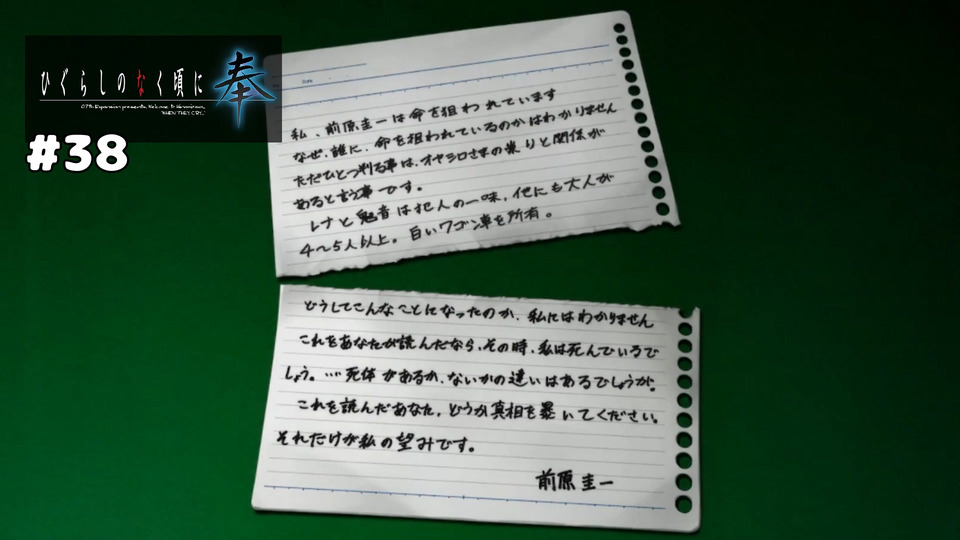 ひぐらしのなく頃に 奉
07th Expansion presents. Welcome to Hinamizawa.
"WHEN THEY CRY..."
#38
Date
私、前原圭一は命を狙われています
なぜ、誰に、命を狙われているのかはわかりません
ただひとつ判る事は、オヤシロさまの祟りと関係が
あると言う事です。
レナと魅音は犯人の一味。他にも大人が
4〜5人以上。白いワゴン車を所有。
どうしてこんなことになったのか、私にはわかりません
これをあなたが読んだなら、その時、私は死んでいるで
しょう。…死体があるか、ないかの違いはあるでしょうが。
これを読んだあなた。どうか真相を暴いてください。
それだけが私の望みです。
前原圭一